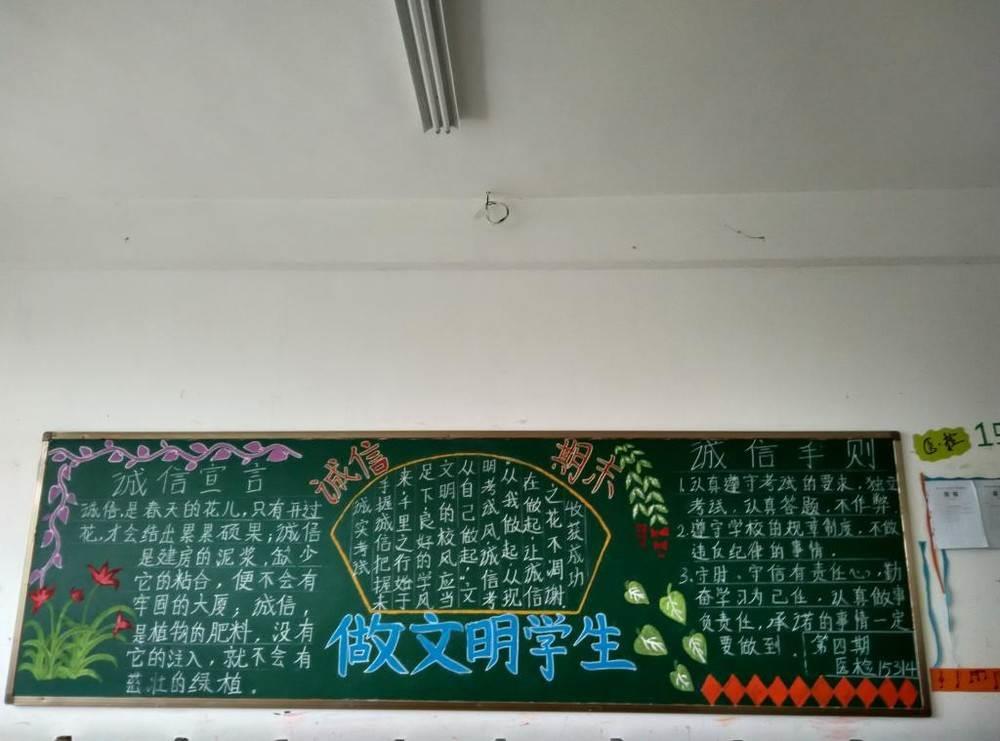 诚信宣言
诚信,是春天的花儿,只有开过
花,才会结出累累硕果;诚信
是建房的泥浆,缺少
它的粘合,便不会有
牢固的大厦;诚信,
是植物的肥料,没有
它的注入,就不会有
茁壮的绿植。
诚信
期末
诚实考试
手握诚信把握未
来,千里之行始于
足下,良好的学风
文明的校风应当
从自己做起,文
明考试风诚信考
从我做起从现
在做起让诚信
之花不凋谢
收获成功
做文明学生
诚信手则
1.认真遵守考试的要求,独立
考试,认真答题,不作弊
2.遵守学校的规章制度,不做
违反纪律的事情。
3.守时、守信有责任心,勤
奋学习为己任,认真做事
负责任,承诺的事情一定
要做到。
第四期
医检15314
医·检
15